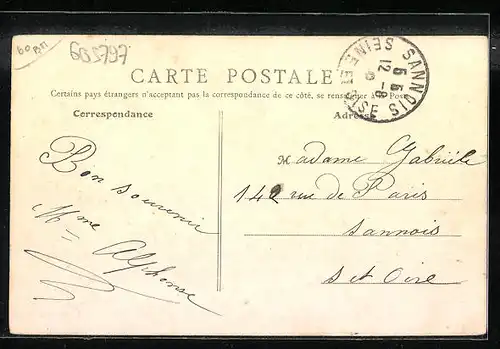 60 BM
605797
CARTE POSTALE
SANNOIS
SEINE ET OISE
5 55
12 -8
Certains pays étrangers n'acceptant pas la correspondance de ce côté, se renseigner à la Poste
Correspondance
Adresse
Bon souvenir
Mme Alphonse
Madame Gabriéle
142 rue de Paris
Sannois
S et Oise